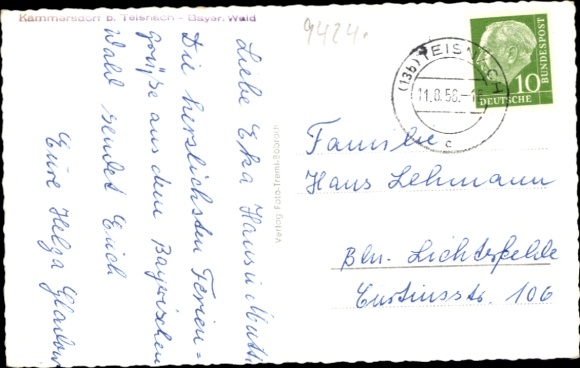 Kammersdorf b. Teisnach - Bayer. Wald
9424.
Liebe Eka Hans u. Mutti
Die herzlichsten Ferien=
Grüße aus dem Bayrischen
Wald sendet Euch
Eure Helga
Verlag Foto-Treml-Bobrach
(13b) TEISNACH
11.8.58.-16
c
10
DEUTSCHE
BUNDESPOST
Familie
Hans Lehmann
Bln. Lichterfelde
Curtiusstr. 106